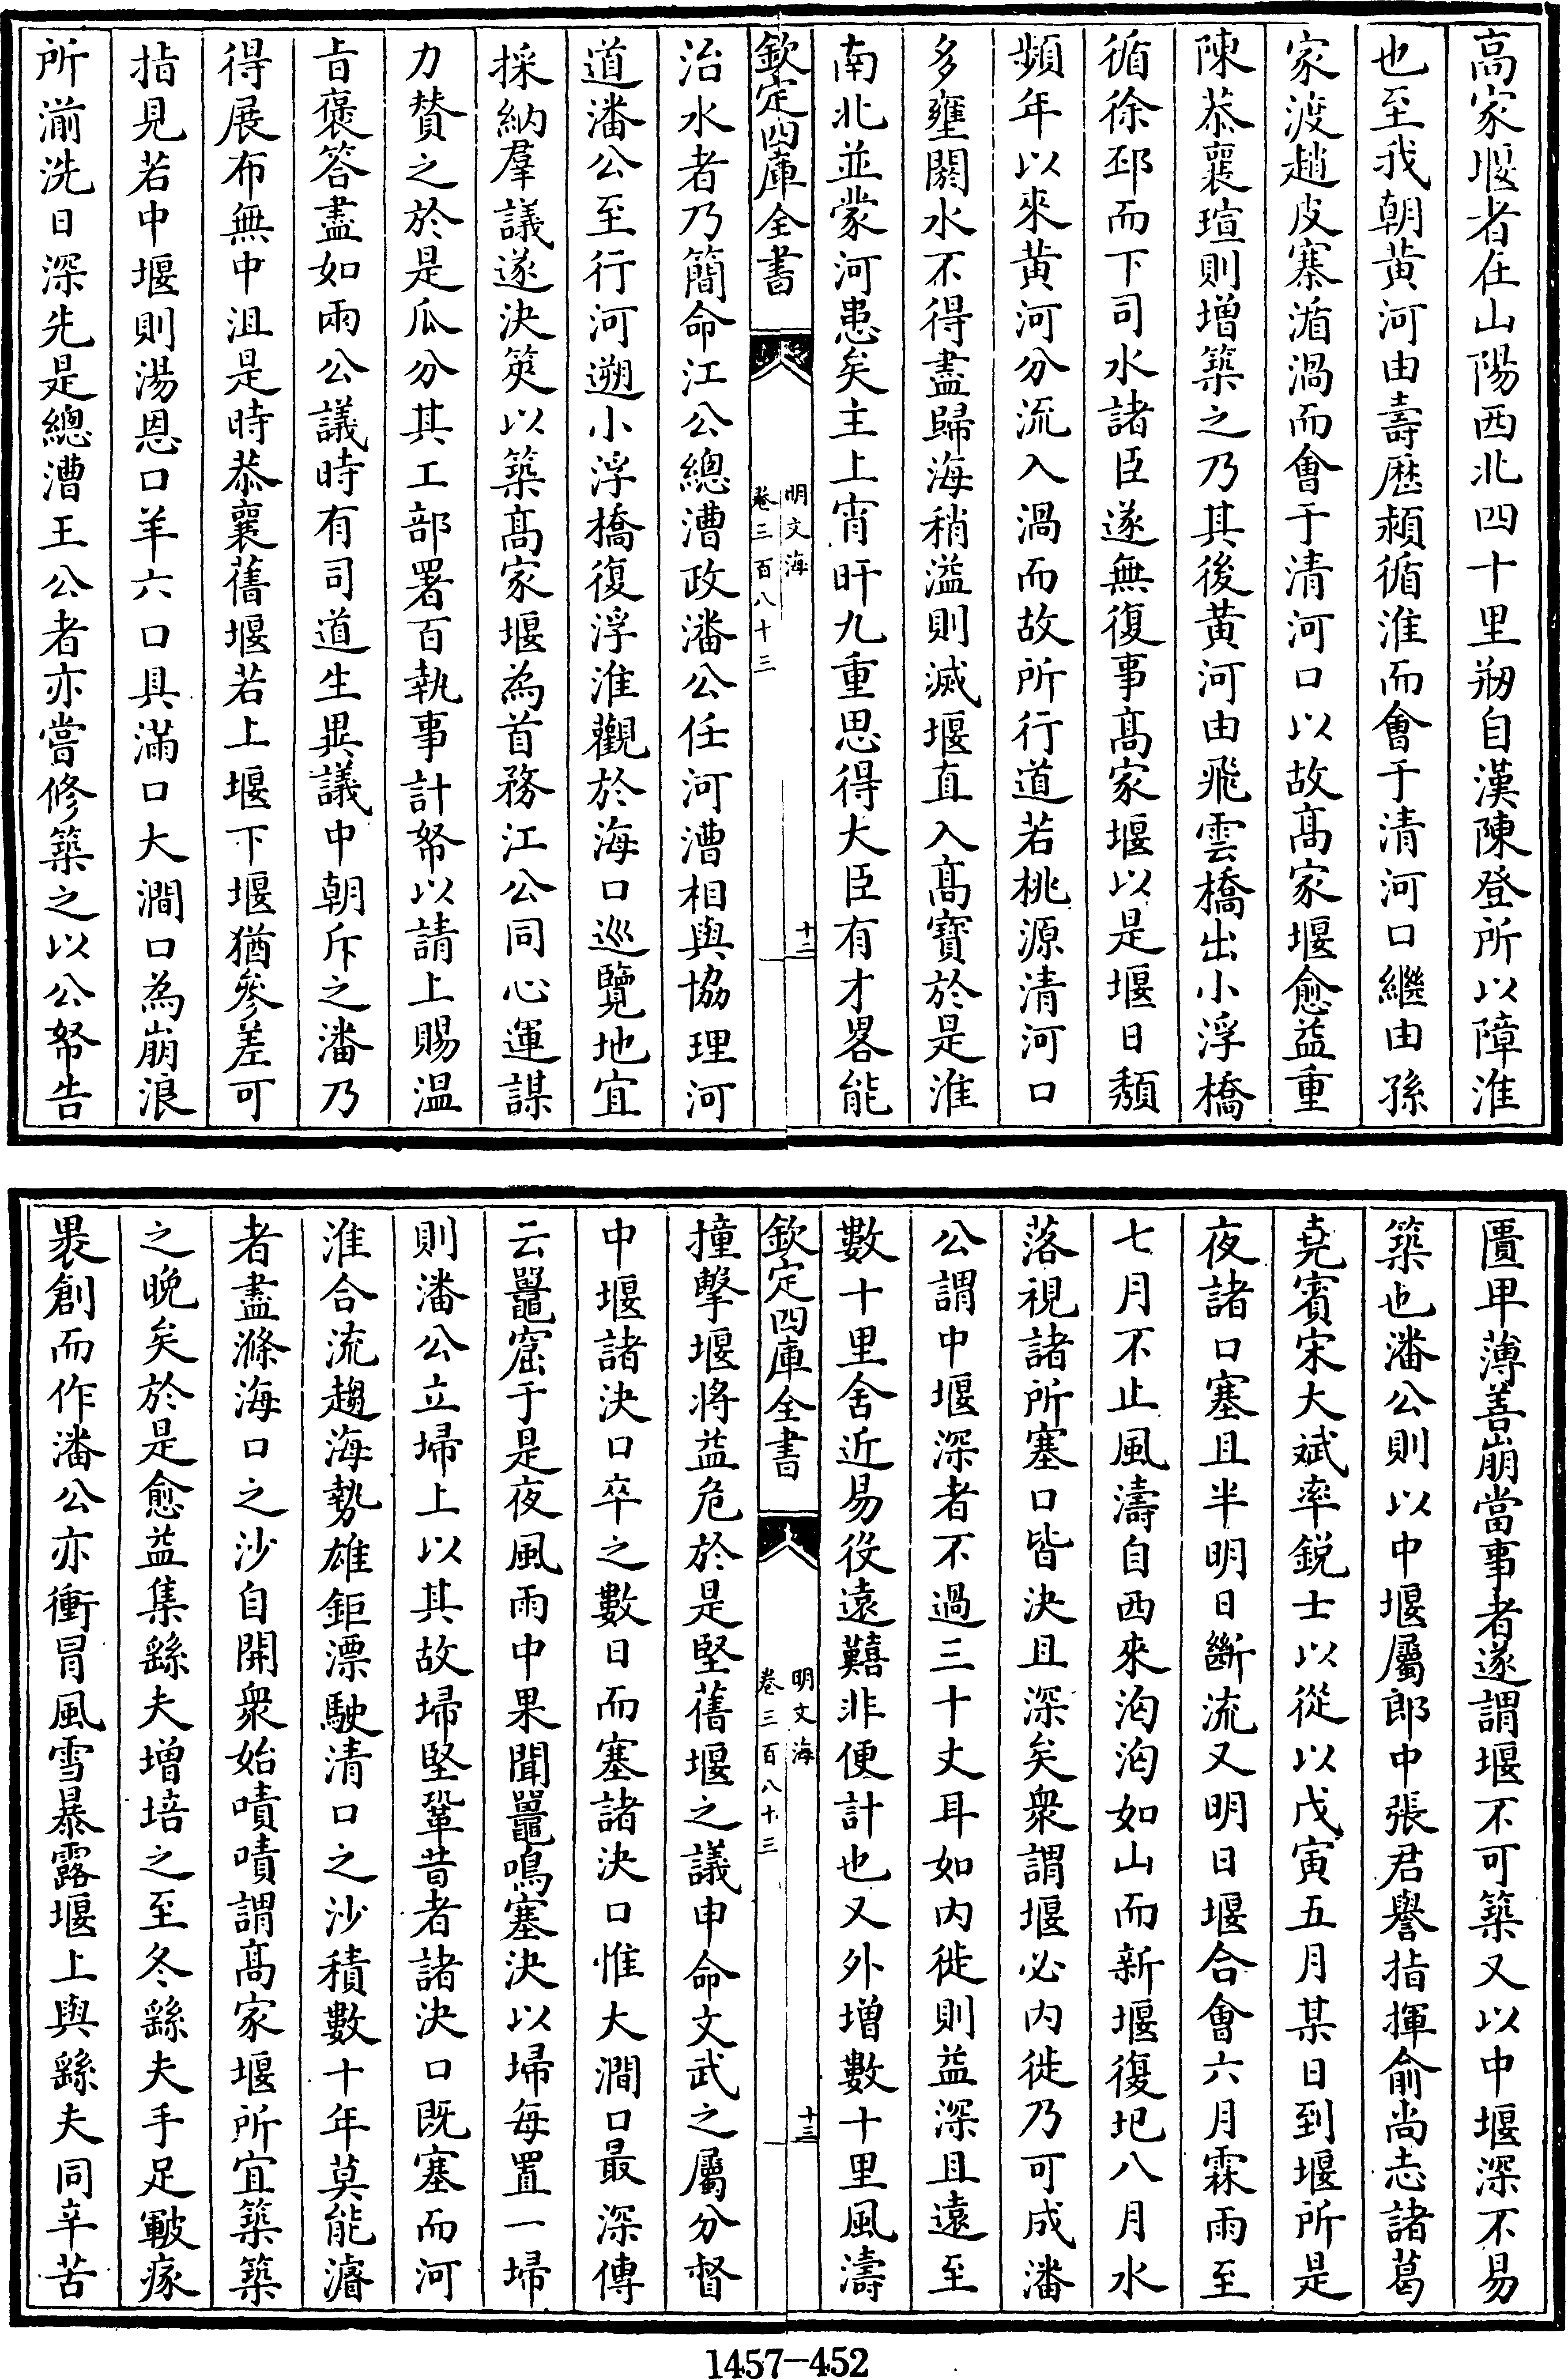 高家堰者在山陽西北四十里剏自漢陳登所以障淮
也至我朝黄河由壽歴潁循淮而會于清河口繼由孫
家渡趙皮寨湻渦而會于清河口以故髙家堰愈益重
陳恭襄瑄則增築之乃其後黄河由飛雲橋出小浮橋
循徐邳而下司水諸臣遂無復事髙家堰以是堰日頽
頻年以來黄河分流入渦而故所行道若桃源清河口
多壅閼水不得盡歸海稍溢則滅堰直入髙寶於是淮
南北並蒙河患矣主上宵旰九重思得大臣有才畧能
欽定四庫全書
明文海
卷三百八十三
十二
治水者乃簡命江公總漕政潘公任河漕相與協理河
道潘公至行河遡小浮橋復浮淮觀於海口巡覽地宜
採納羣議遂決筴以築髙家堰為首務江公同心運謀
力賛之於是瓜分其工部署百執事計帑以請上賜温
㫖褒答盡如兩公議時有司道生異議中朝斥之潘乃
得展布無中沮是時恭襄舊堰若上堰下堰猶參差可
指見若中堰則湯恩口羊六口具滿口大澗口為崩浪
所湔洗日深先是總漕王公者亦嘗修築之以公帑告
匱卑薄善崩當事者遂謂堰不可築又以中堰深不易
築也潘公則以中堰屬郎中張君譽指揮俞尚志諸葛
堯賓宋大斌率鋭士以從以戊寅五月某日到堰所是
夜諸口塞且半明日斷流又明日堰合會六月霖雨至
七月不止風濤自西來洶洶如山而新堰復圮八月水
落視諸所塞口皆決且深矣衆謂堰必内徙乃可成潘
公謂中堰深者不過三十丈耳如内徙則益深且遠至
數十里舍近易役遠囏非便計也又外增數十里風濤
欽定四庫全書
明文海
卷三百八十三
十三
撞擊堰将益危於是堅舊堰之議申命文武之屬分督
中堰諸決口卒之數日而塞諸決口惟大澗口最深傳
云鼉窟于是夜風雨中果聞鼉鳴塞決以埽每置一埽
則潘公立埽上以其故埽堅鞏昔者諸決口既塞而河
淮合流趨海勢雄鉅漂駛清口之沙積數十年莫能濬
者盡滌海口之沙自開衆始嘖嘖謂髙家堰所宜築築
之晩矣於是愈益集繇夫增培之至冬繇夫手足皸瘃
褁創而作潘公亦衝冒風雪暴露堰上與繇夫同辛苦
1457-452